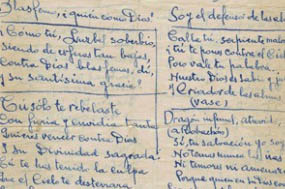 Blasfemo, ¿quién como Dios!
¿Cómo tú, Luzbel soberbio,
siendo de esfera tan baja,
contra Dios blasfemas, di,
y su santísima gracia?
Tú sólo te rebelaste
Con furia y envidia tanta
Quieres vencer contra Dios
Y su Divinidad sagrada
tú te has tenido la culpa
que el Cielo te desterrara
Soy el defensor de las al
Calla tú, serpiente mal
¿tú te pones contra el Ci
Poco vale tu palabra
Nuestro Dios es sabio y p
y Criador de las almas
(vase)
Dragón infernal, atrevid
Si, tu salvación yo so
No temas nunca las iras
Ni temores ni amenaz
Porque quien en tu